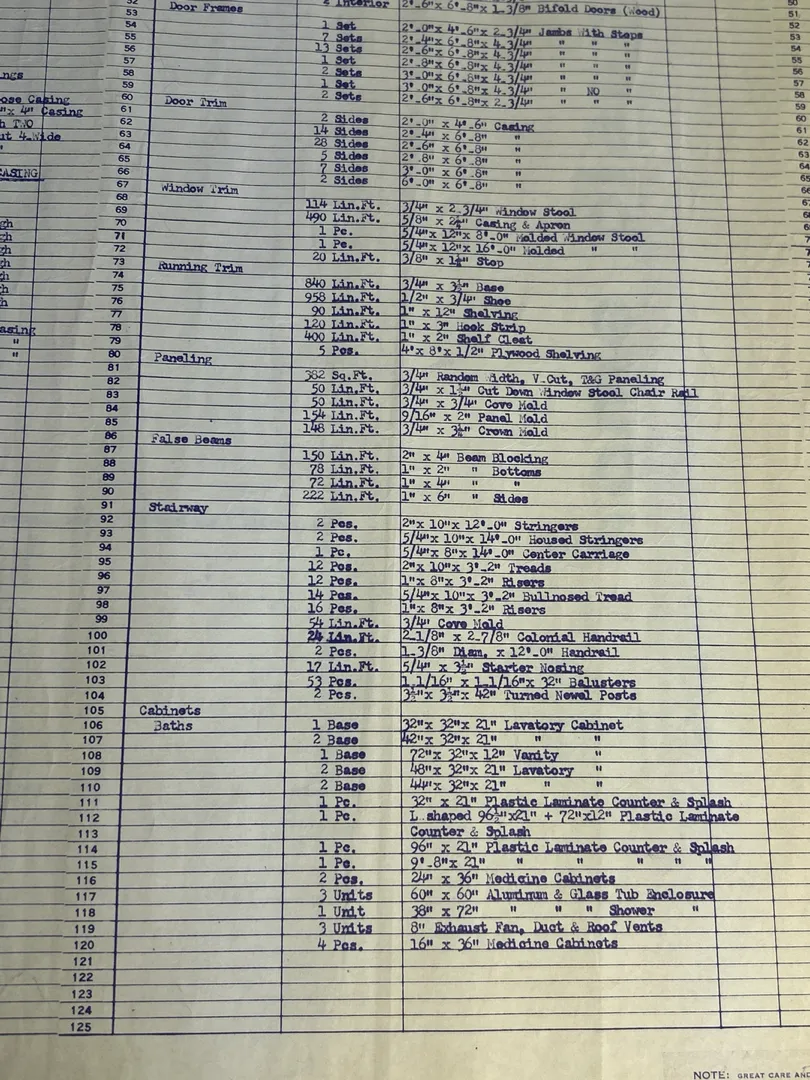 52 2 Interior 2'-6"x 6'-8"x 1-3/8" Bifold Doors (Wood)
53 Door Frames
54 1 Set 2'-0"x 4'-6"x 2-3/4" Jambs With Stops
55 7 Sets 2'-4"x 6'-8"x 4-3/4" " " "
56 13 Sets 2'-6"x 6'-8"x 4-3/4" " " "
57 1 Set 2'-8"x 6'-8"x 4-3/4" " " "
58 2 Sets 3'-0"x 6'-8"x 4-3/4" " " "
59 1 Set 3'-0"x 6'-8"x 4-3/4" " NO "
60 2 Sets 2'-6"x 6'-8"x 2-3/4" " " "
61 Door Trim
62 2 Sides 2'-0" x 4'-6" Casing
63 14 Sides 2'-4" x 6'-8" "
64 28 Sides 2'-6" x 6'-8" "
65 5 Sides 2'-8" x 6'-8" "
66 7 Sides 3'-0" x 6'-8" "
67 2 Sides 6'-0" x 6'-8" "
Window Trim
69 114 Lin.Ft. 3/4" x 2-3/4" Window Stool
70 490 Lin.Ft. 5/8" x 2¼" Casing & Apron
71 1 Pc. 5/4"x 12"x 8'-0" Molded Window Stool
72 1 Pc. 5/4"x 12"x 16'-0" Molded " "
73 20 Lin.Ft. 3/8" x 1¼" Stop
74 Running Trim
75 840 Lin.Ft. 3/4" x 3½" Base
76 958 Lin.Ft. 1/2" x 3/4" Shoe
77 90 Lin.Ft. 1" x 12" Shelving
78 120 Lin.Ft. 1" x 3" Hook Strip
79 400 Lin.Ft. 1" x 2" Shelf Cleat
80 5 Pcs. 4'x 8'x 1/2" Plywood Shelving
81 Paneling
82 382 Sq.Ft. 3/4" Random Width, V-Cut, T&G Paneling
83 50 Lin.Ft. 3/4" x 1½" Cut Down Window Stool Chair Rail
84 50 Lin.Ft. 3/4" x 3/4" Cove Mold
85 154 Lin.Ft. 9/16" x 2" Panel Mold
86 148 Lin.Ft. 3/4" x 3¼" Crown Mold
87 False Beams
88 150 Lin.Ft. 2" x 4" Beam Blocking
89 78 Lin.Ft. 1" x 2" " Bottoms
90 72 Lin.Ft. 1" x 4" " "
91 222 Lin.Ft. 1" x 6" " Sides
Stairway
92 2 Pcs. 2"x 10"x 12'-0" Stringers
93 2 Pcs. 5/4"x 10"x 14'-0" Housed Stringers
94 1 Pc. 5/4"x 8"x 14'-0" Center Carriage
95 12 Pcs. 2"x 10"x 3'-2" Treads
96 12 Pcs. 1"x 8"x 3'-2" Risers
97 14 Pcs. 5/4"x 10"x 3'-2" Bullnosed Tread
98 16 Pcs. 1"x 8"x 3'-2" Risers
99 54 Lin.Ft. 3/4" Cove Mold
100 24 Lin.Ft. 2-1/8" x 2-7/8" Colonial Handrail
101 2 Pcs. 1-3/8" Diam. x 12'-0" Handrail
102 17 Lin.Ft. 5/4" x 3½" Starter Nosing
103 53 Pcs. 1-1/16" x 1-1/16"x 32" Balusters
104 2 Pcs. 3½"x 3½"x 42" Turned Newel Posts
105 Cabinets
106 Baths 1 Base 32"x 32"x 21" Lavatory Cabinet
107 2 Base 42"x 32"x 21" " "
108 1 Base 72"x 32"x 12" Vanity "
109 2 Base 48"x 32"x 21" Lavatory "
110 2 Base 44"x 32"x 21" " "
111 1 Pc. 32" x 21" Plastic Laminate Counter & Splash
112 1 Pc. L-shaped 96½"x21" + 72"x12" Plastic Laminate
113 Counter & Splash
114 1 Pc. 96" x 21" Plastic Laminate Counter & Splash
115 1 Pc. 9'-8"x 21" " " " " "
116 2 Pcs. 24" x 36" Medicine Cabinets
117 3 Units 60" x 60" Aluminum & Glass Tub Enclosure
118 1 Unit 38" x 72" " " " Shower "
119 3 Units 8" Exhaust Fan, Duct & Roof Vents
120 4 Pcs. 16" x 36" Medicine Cabinets
121
122
123
124
125
NOTE: GREAT CARE AND